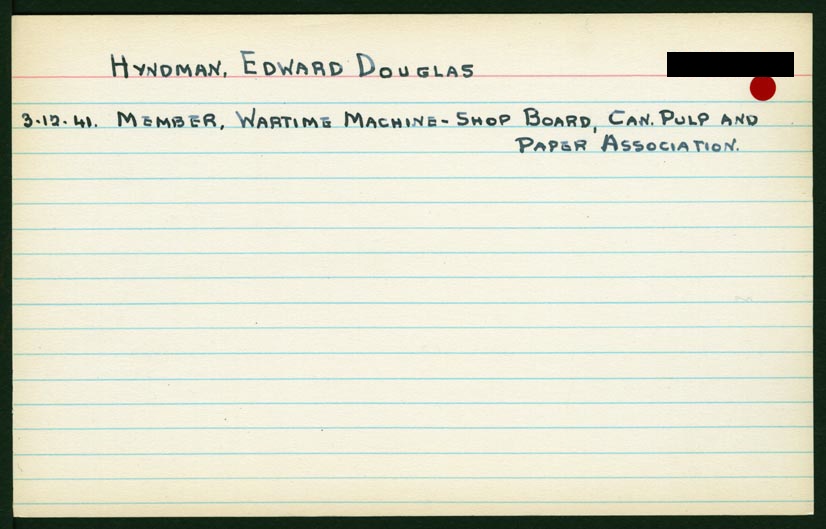 HYNDMAN, EDWARD DOUGLAS
3.12.41. MEMBER, WARTIME MACHINE-SHOP BOARD, CAN. PULP AND
PAPER ASSOCIATION.